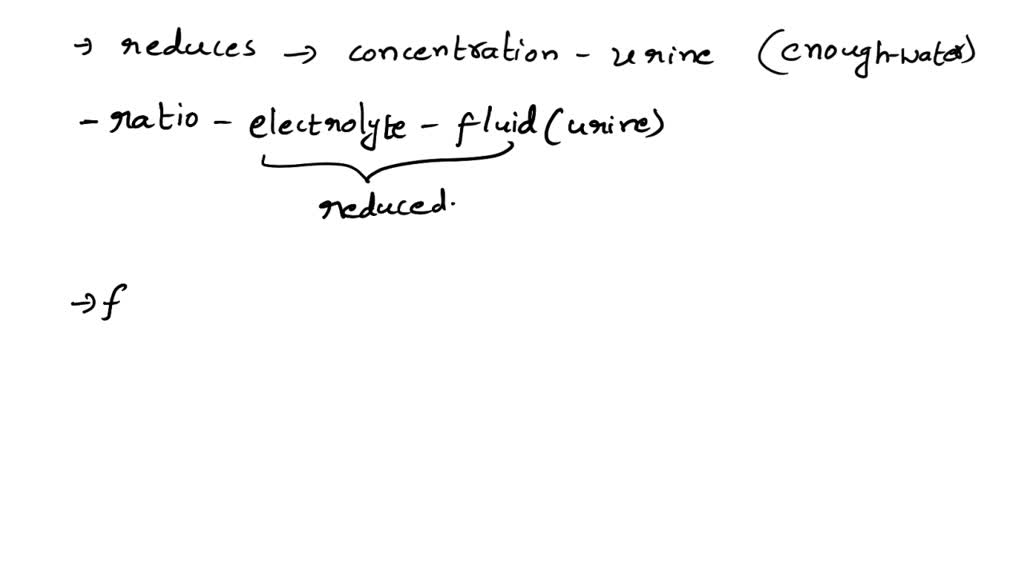 → reduces → concentration - urine (enough-water)
- ratio - electrolyte - fluid (urine)
reduced.
→ f